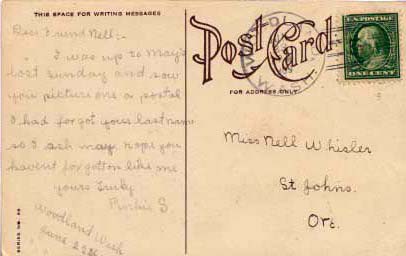 THIS SPACE FOR WRITING MESSAGES
Dear Friend Nell:-
I was up to May's
last Sunday and saw
you picture one a postal
I had forgot your last name
so I ask may hope you
havent forgotton like me
yours truly
S
Woodland Wash
June 22
SERIES No.
Post Card
FOR ADDRESS ONLY
U.S. POSTAGE
ONE CENT
Miss Nell Whisler
St Johns.
Ore.